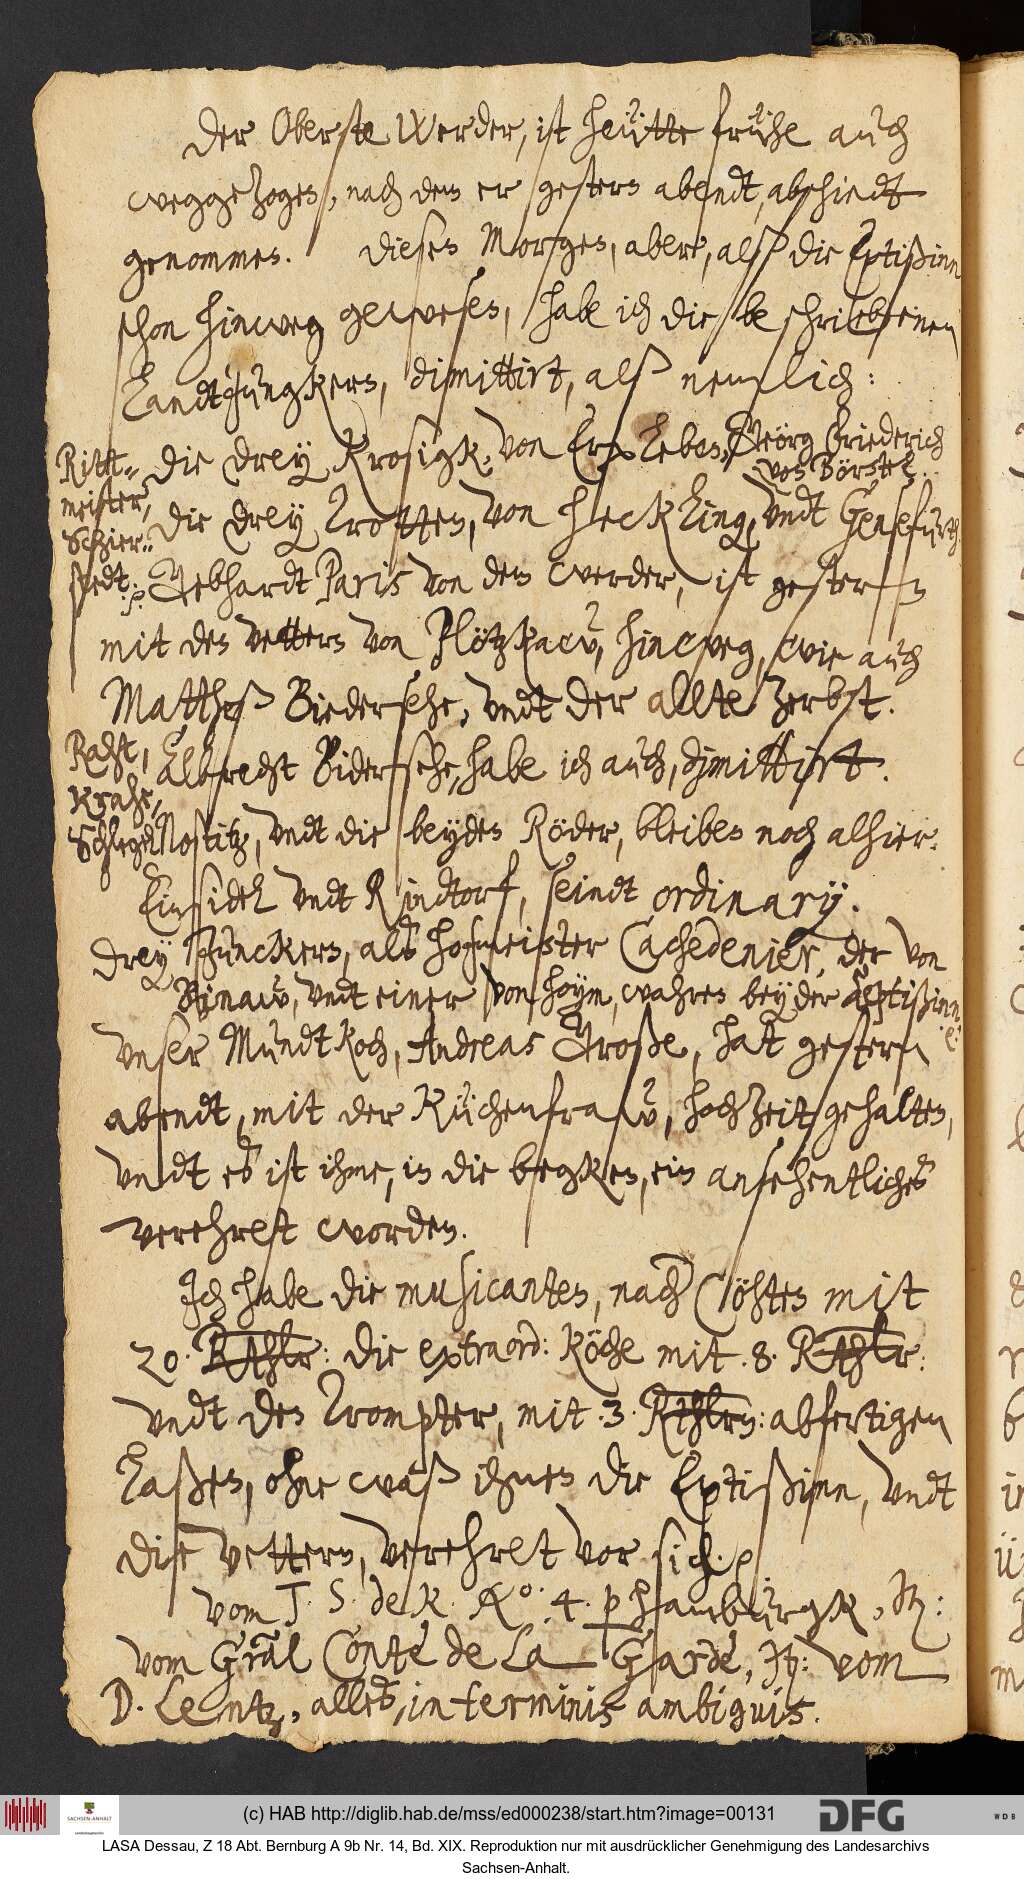 Der Oberste Werder, ist heütte frühe auch
weggezogen, nach dem er gestern abendt, abschiedt
genommen. Diesen Morgen, aber, alß die Eptißinn
schon hinweg gewesen, habe ich die beschriebenen
Landtiunckern, dimittirt, alß nemlich:
Die drey Krosigk, von Erxleben, Geörg Friederich
von Börstel.
Ritt-
meister,
Schier-
stedt. p
die drey Trotten, von Hecklingen, vndt Gensefurth.
Gebhardt Paris von dem werder, ist gestern
mit den vettern von Plötzkaw, hinweg, wie auch
Matthß Bidersehe, vndt der allte Zerbst.
Raht,
Krahe,
Schlegel
Albrecht Bidersehe, habe ich auch, dimittirt.
Nostitz, vndt die beyden Röder, bleiben noch alhier.
Einsidel vndt Rindtorf, seindt ordinarij.
Drey Junckern, als hofmeister Cachedenier, der von
Bünaw, vndt einer von Hoym, wahren bey der Eptißinn.
Vnser Mundtkoch, Andreas Große, hat gestern
abendt, mit der Küchenfraw, hochzeit gehalten,
vndt es ist ihme, in die becken, ein ansehentliches
verehret worden.
Ich habe die musicanten, nach Cöhten mit
20. Rthlr: die extraord: Köche mit .8. Rthlr:
vndt den Trompter, mit .3. Rthlrn: abfertigen
laßen, ohne waß ihnen die Eptißinn, vndt
die vettern, verehret vor sich. p
Vom J. S. de k. Ao. 4. p hamburgk, It:
vom Gral Conte de La Garde, It: vom
D. Lentz, alles, in terminis ambiguis.
(c) HAB http://diglib.hab.de/mss/ed000238/start.htm?image=00131
SACHSEN-ANHALT
DFG
WDB
LASA Dessau, Z 18 Abt. Bernburg A 9b Nr. 14, Bd. XIX. Reproduktion nur mit ausdrücklicher Genehmigung des Landesarchivs
Sachsen-Anhalt.